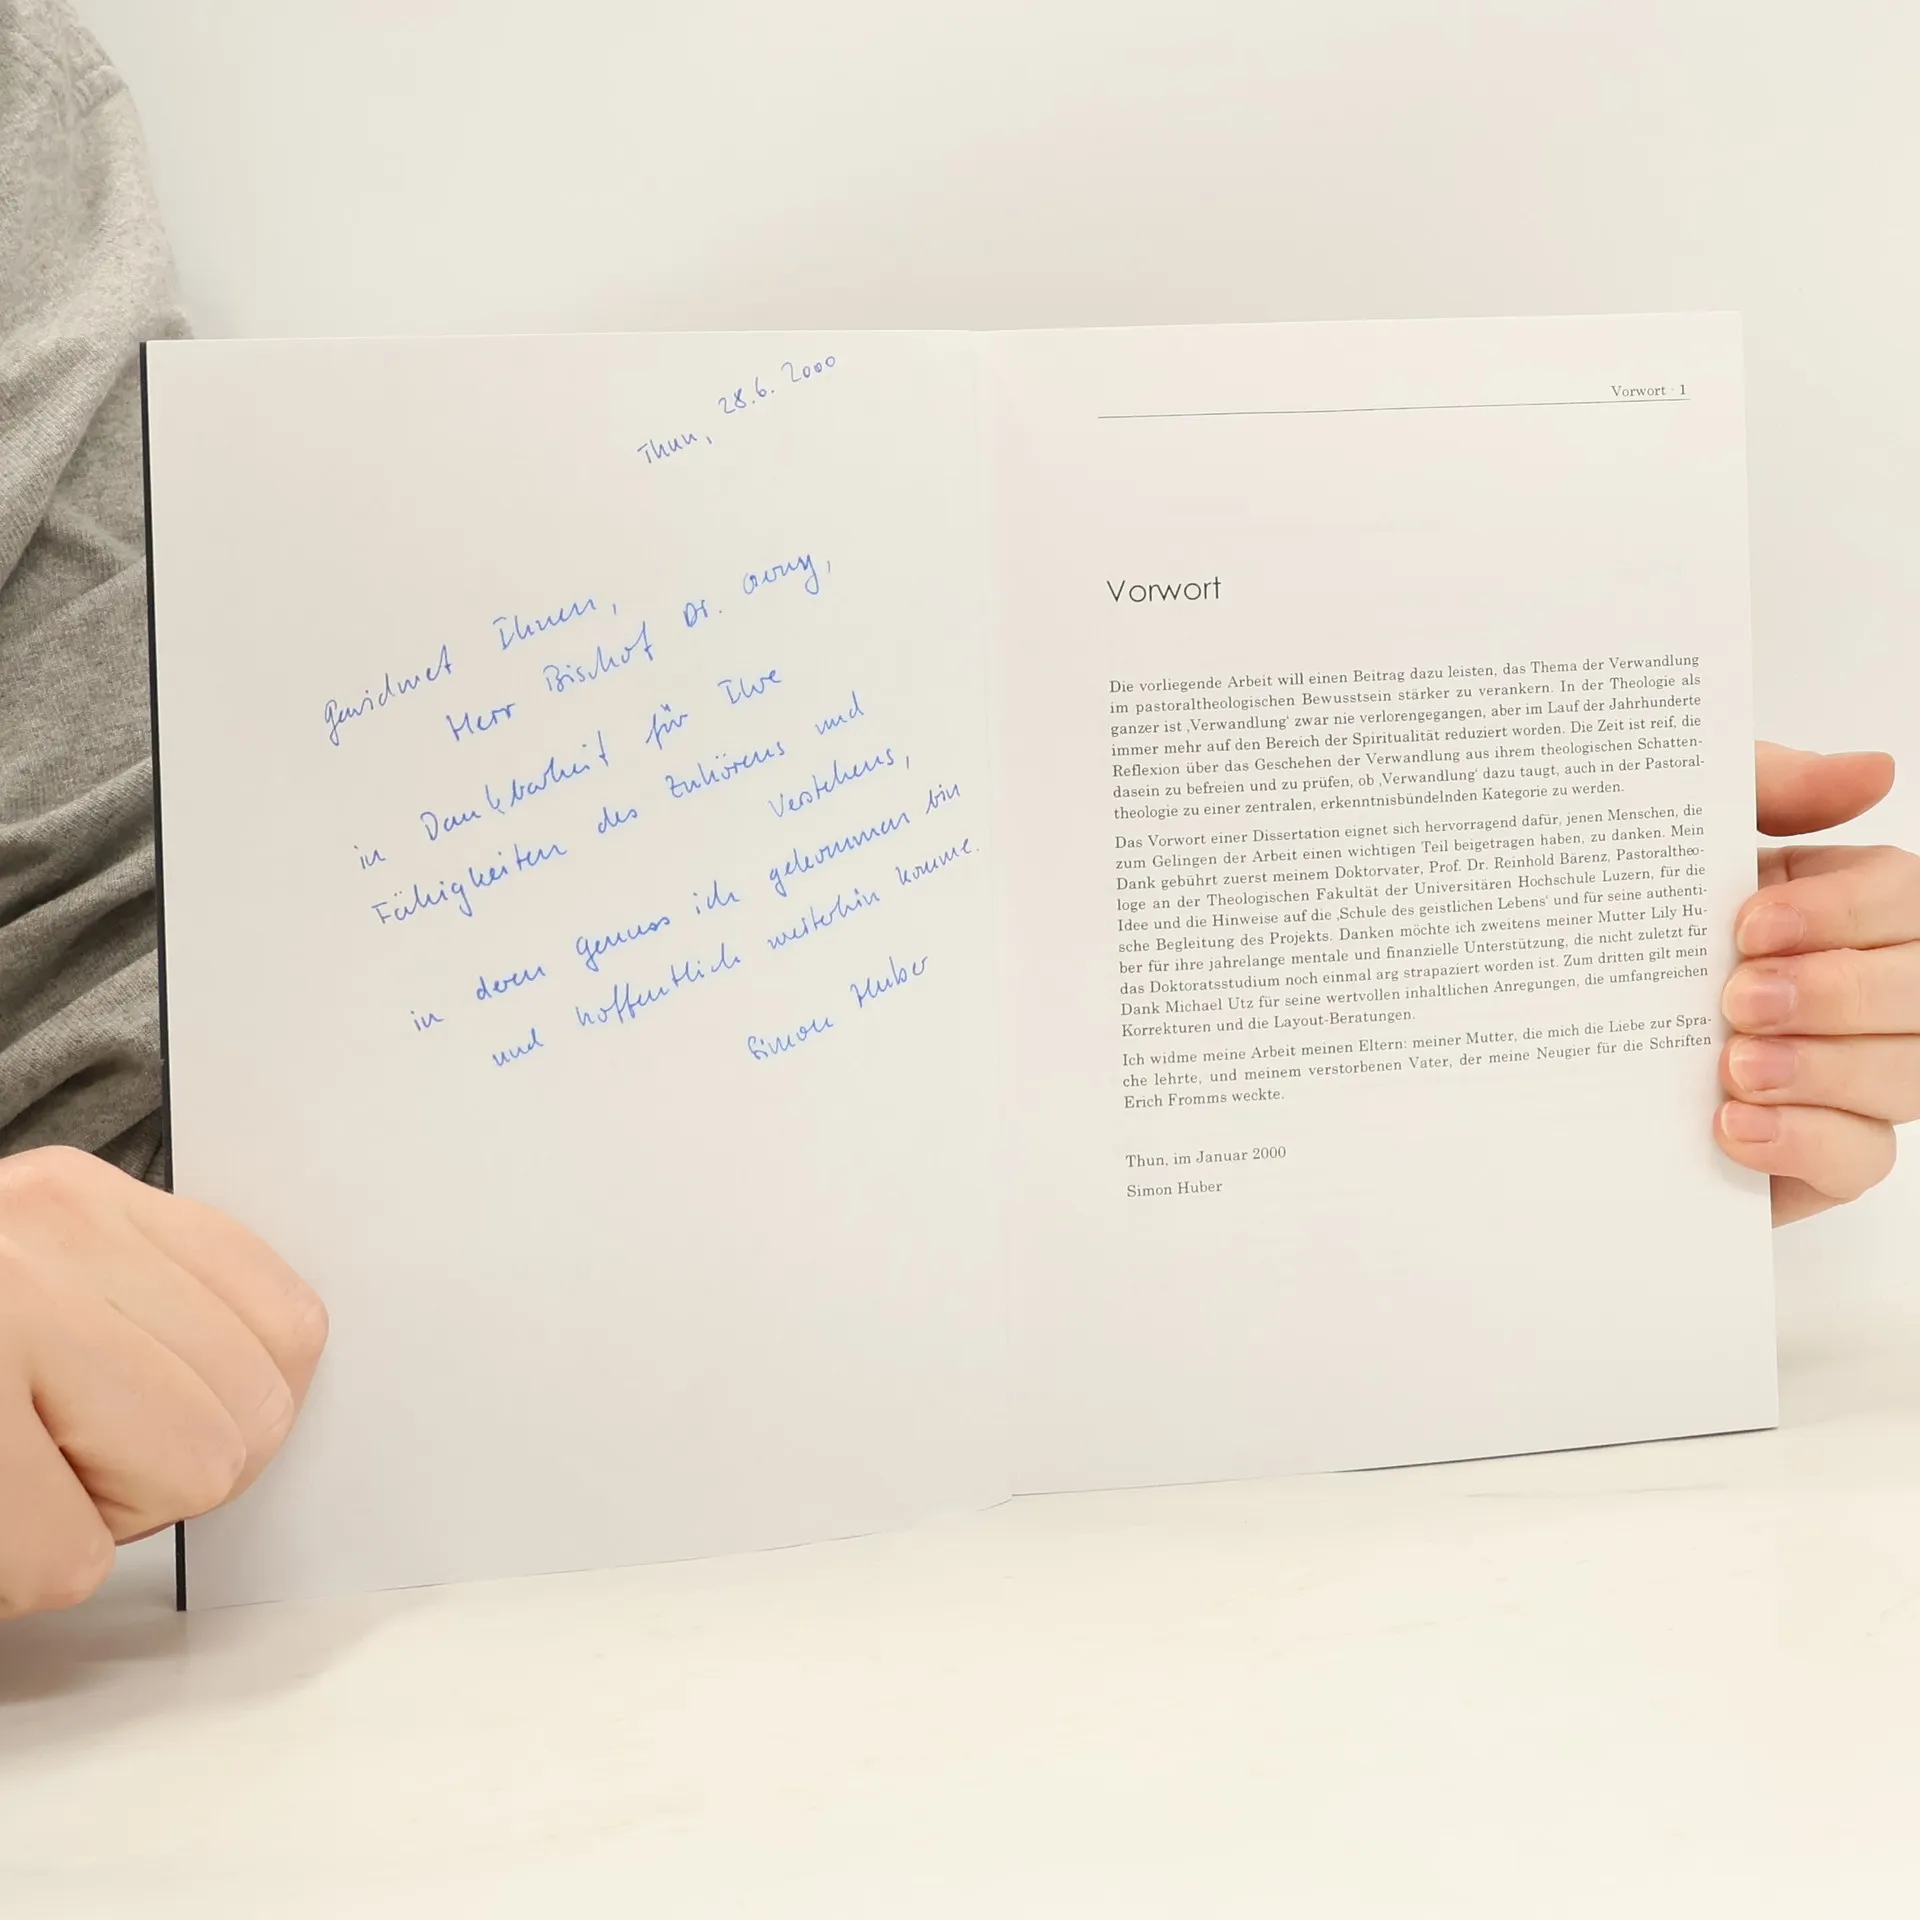 Thun, 28.6.2000
gewidmet Ihnen,
Herr Bischof Dr.
in Dankbarkeit für Ihre
Fähigkeiten des Zuhörens und
Verstehens,
in deren Genuss ich gekommen bin
und hoffentlich weiterhin komme.
Simon Huber
Vorwort · 1
Vorwort
Die vorliegende Arbeit will einen Beitrag dazu leisten, das Thema der Verwandlung
im pastoraltheologischen Bewusstsein stärker zu verankern. In der Theologie als
ganzer ist ‚Verwandlung‘ zwar nie verlorengegangen, aber im Lauf der Jahrhunderte
immer mehr auf den Bereich der Spiritualität reduziert worden. Die Zeit ist reif, die
Reflexion über das Geschehen der Verwandlung aus ihrem theologischen Schatten-
dasein zu befreien und zu prüfen, ob ‚Verwandlung‘ dazu taugt, auch in der Pastoral-
theologie zu einer zentralen, erkenntnisbündelnden Kategorie zu werden.
Das Vorwort einer Dissertation eignet sich hervorragend dafür, jenen Menschen, die
zum Gelingen der Arbeit einen wichtigen Teil beigetragen haben, zu danken. Mein
Dank gebührt zuerst meinem Doktorvater, Prof. Dr. Reinhold Bärenz, Pastoraltheo-
loge an der Theologischen Fakultät der Universitären Hochschule Luzern, für die
Idee und die Hinweise auf die ‚Schule des geistlichen Lebens‘ und für seine authenti-
sche Begleitung des Projekts. Danken möchte ich zweitens meiner Mutter Lily Hu-
ber für ihre jahrelange mentale und finanzielle Unterstützung, die nicht zuletzt für
das Doktoratsstudium noch einmal arg strapaziert worden ist. Zum dritten gilt mein
Dank Michael Utz für seine wertvollen inhaltlichen Anregungen, die umfangreichen
Korrekturen und die Layout-Beratungen.
Ich widme meine Arbeit meinen Eltern: meiner Mutter, die mich die Liebe zur Spra-
che lehrte, und meinem verstorbenen Vater, der meine Neugier für die Schriften
Erich Fromms weckte.
Thun, im Januar 2000
Simon Huber